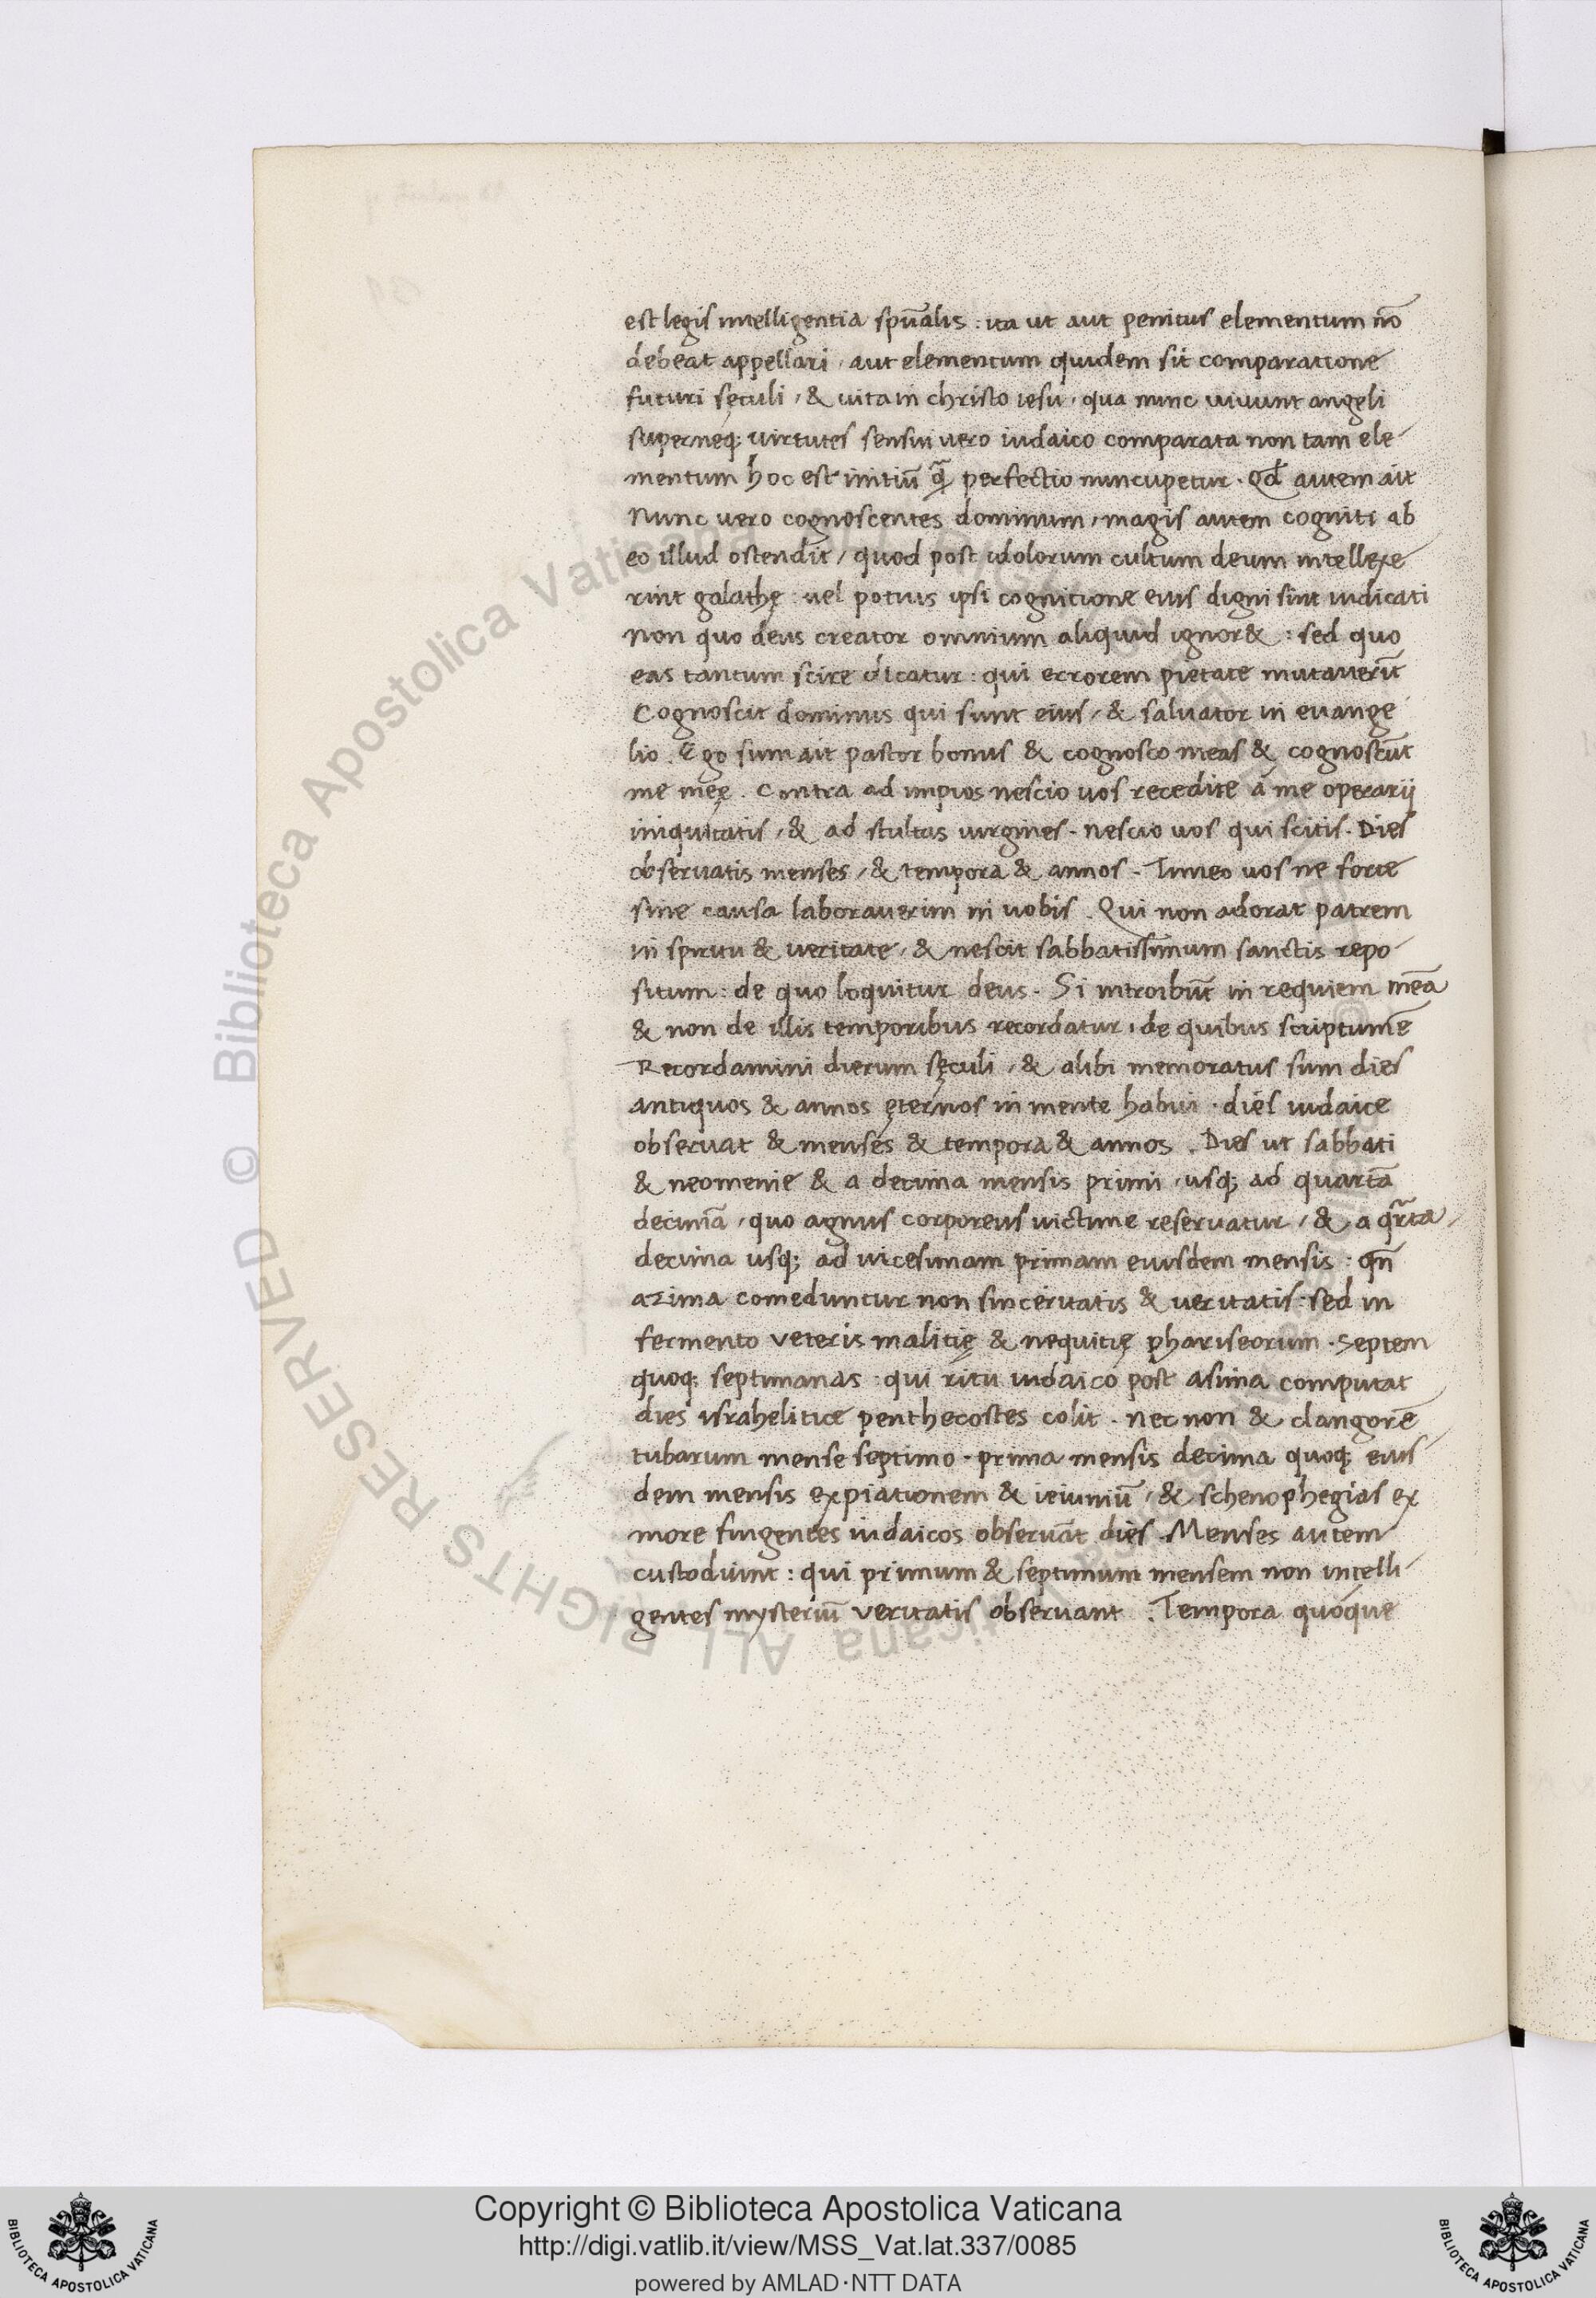 est legis intelligentia spũalis : ita ut aut penitus elementum nõ
debeat appellari , aut elementum quidem sit comparatione
futuri sęculi , & uita in christo iesu , qua nunc uiuunt angeli
superneq; uirtutes sensui uero iudaico comparata non tam ele-
mentum hoc est initiũ q̃ perfectio nuncupetur . Qđ autem ait
Nunc uero cognoscentes dominum , magis autem cogniti ab
eo illud ostendit , quod post idolorum cultum deum intellexe
rint galathę : uel potius ipsi cognitione eius digni sint iudicati
Non quo deus creator omnium aliquid ignor& : sed quo
eas tantum scire dicatur : qui errorem pietate mutauerũt
Cognoscit dominus qui sunt eius , & saluator in euange
lio . Ego sum ait pastor bonus & cognosco meas & cognoscũt
me meę . Contra ad impios nescio uos recedite á me operarij
iniquitatis , & ad stultas uirgines . nescio uos qui scitis . Dies
obseruatis menses , & tempora & annos . Timeo uos ne forte
sine causa laborauerim in uobis . Qui non adorat patrem
in spiritu & ueritate , & nescit sabbatissimum sanctis repo-
situm : de quo loquitur deus . Si introibũt in requiem meã
& non de illis temporibus recordatur , de quibus scriptumẽ
Recordamini dierum sęculi , & alibi memoratus sum dies
antiquos & annos ęternos in mente habui . dies iudaice
obseruat & menses & tempora & annos . Dies ut sabbati
& neomenie & a decima mensis primi , usq; ad quartã
decimã , quo agnus corporeus uictime reseruatur , & a qrta
decima usq; ad uicesimam primam eiusdem mensis : qñ
azima comeduntur non sinceritatis & ueritatis : sed in
fermento veteris malitię & nequitię phariseorum . Septem
quoq; septimanas : qui ritu iudaico post asima computat
dies israhelitice penthecostes colit . nec non & clangorẽ
tubarum mense septimo . prima mensis decima quoq; eius
dem mensis expiationem & ieiuniũ , & schenophegias ex
more fingentes iudaicos obseruãt dies . Menses autem
custodiunt : qui primum & septimum mensem non intelli-
gentes mysteriũ veritatis obseruant . Tempora quoque
© Biblioteca Apostolica Vaticana ALL RIGHTS RESERVED
Copyright © Biblioteca Apostolica Vaticana
http://digi.vatlib.it/view/MSS_Vat.lat.337/0085
powered by AMLAD·NTT DATA
BIBLIOTECA APOSTOLICA VATICANA
BIBLIOTECA APOSTOLICA VATICANA